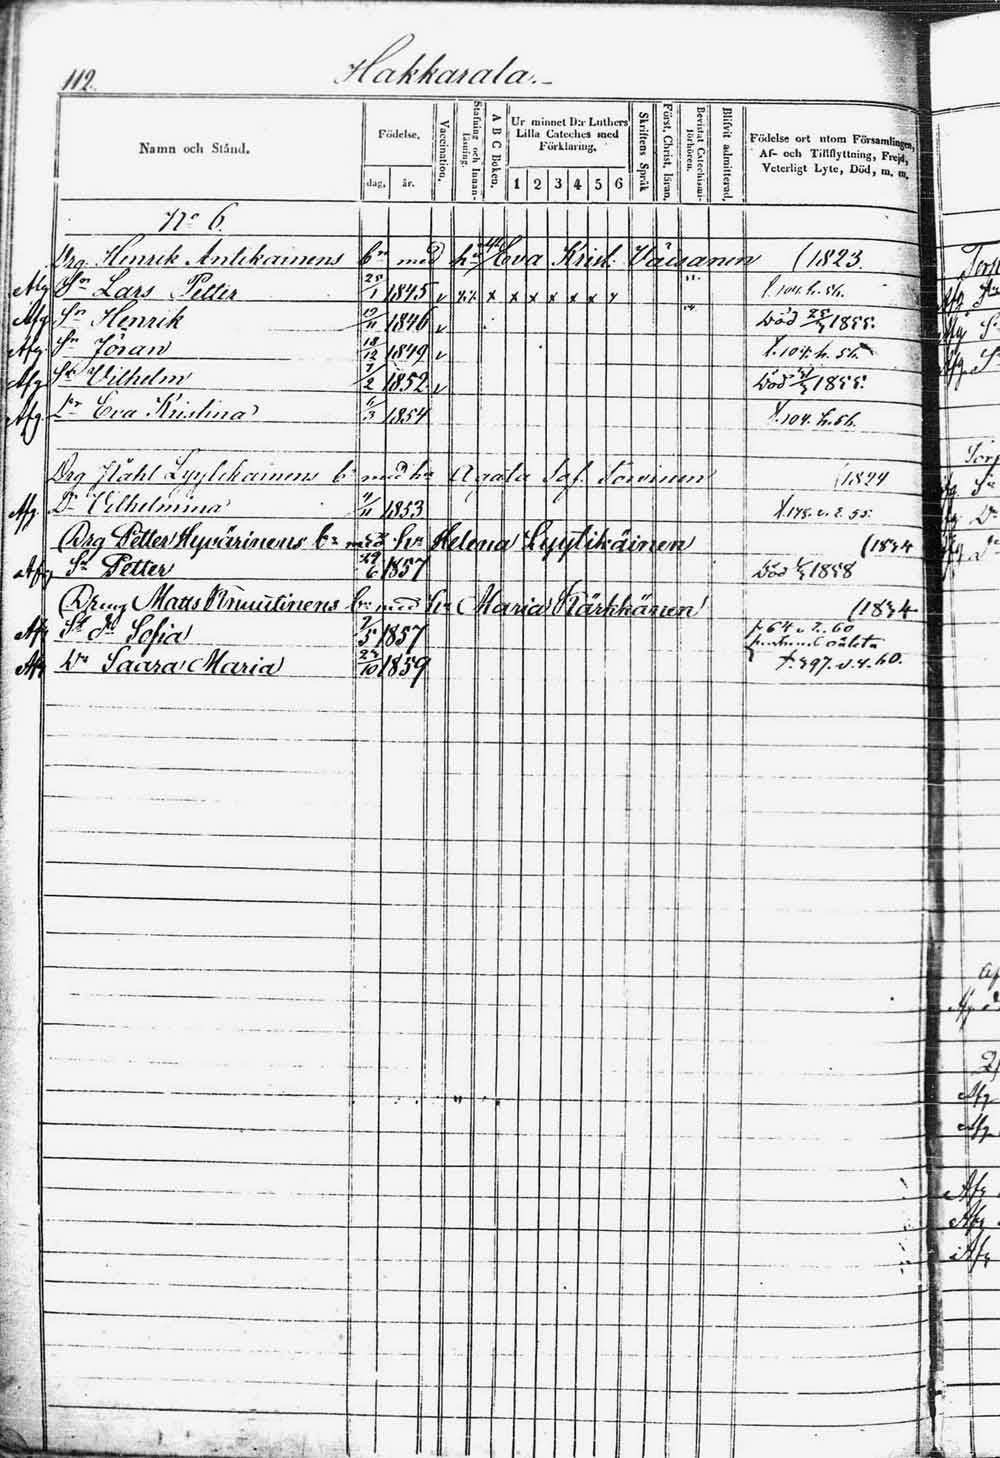 112.
Hakkarala.
Namn och Stånd.
Födelse.
dag. år.
Vaccination.
Stafning och Innan-läsning.
A B C Boken.
Ur minnet D:r Luthers Lilla Cateches med Förklaring.
1 2 3 4 5 6
Skriftens Språk
Först. Christ. läran.
Bevistat Catechismi-förhören.
Blifvit admitterad.
Födelse ort utom Församlingen, Af- och Tillflyttning, Frejd, Veterligt Lyte, Död, m. m.
No 6.
Drg. Henrik Antikainens bn med hu Eva Krist. Väisänen (1823.
Afg Sn Lars Petter 25/1 1845 v x x x x x x x f. 104. h. 56.
Afg Sn Henrik 19/11 1846 v död 1855.
Afg Sn Jöran 18/12 1849 v f. 104. h. 56.
Afg Sn Vilhelm 7/2 1852 v död 1855.
Afg. Dr Eva Kristina 6/3 1854 f. 104. h. 56.
Drg Ståhl Lyytikäinens bn med hu Agata Sof. Torvinen (1824
Afg. Dr Vilhelmina 4/11 1853 f. 178. v. 2. 55.
Drg Petter Hyvärinens bn med hu Helena Lyytikäinen (1834
Afg Sn Petter 29/6 1857 död 1858
Dreng Matts Knuutinens bn med hu Maria Kärkkänen (1834
Afg Dr Sofia 7/5 1857 f. 64 v. 2. 60
Afg Dr Saara Maria 23/10 1859 f. 397. v. 4. 60.